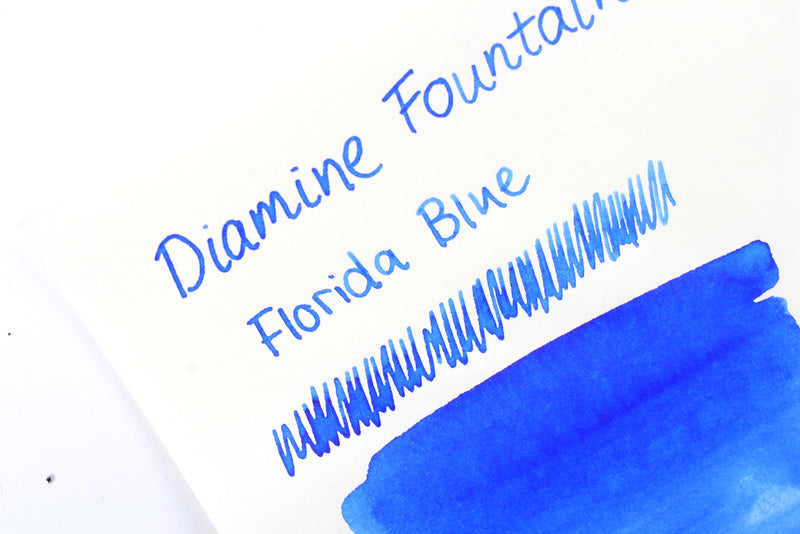 Diamine Fountain
Florida Blue